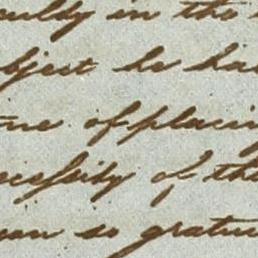 culty in the
bject he ha
me of placing
ecessity of the
een so gratu